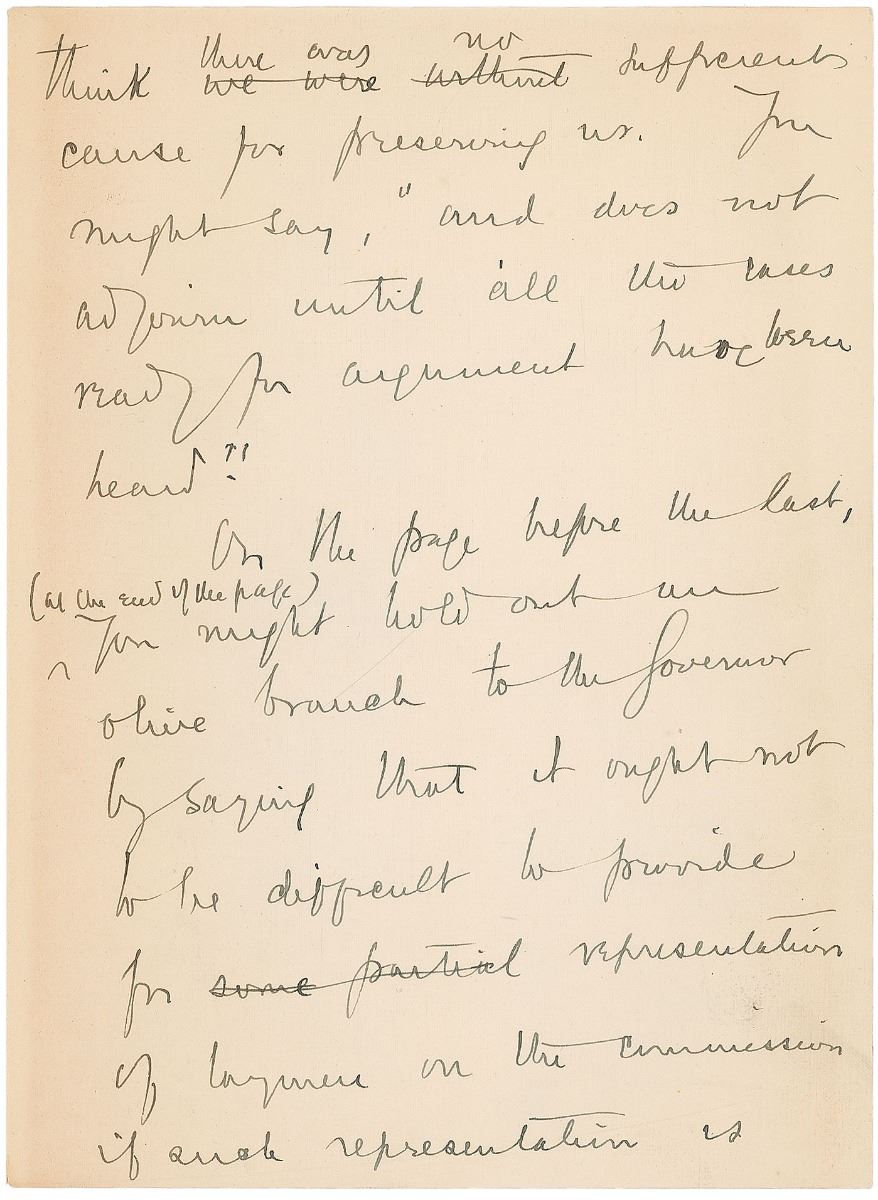 there was no
think we were without sufficient
cause for preserving us. You
might say, "and does not
adjourn until all the cases
ready for argument have been
heard."
On the page before the last,
(at the end of the page)
^ You might hold out an
olive branch to the Governor
by saying that it ought not
to be difficult to provide
for some partial representation
of laymen on the commission
if such representation is